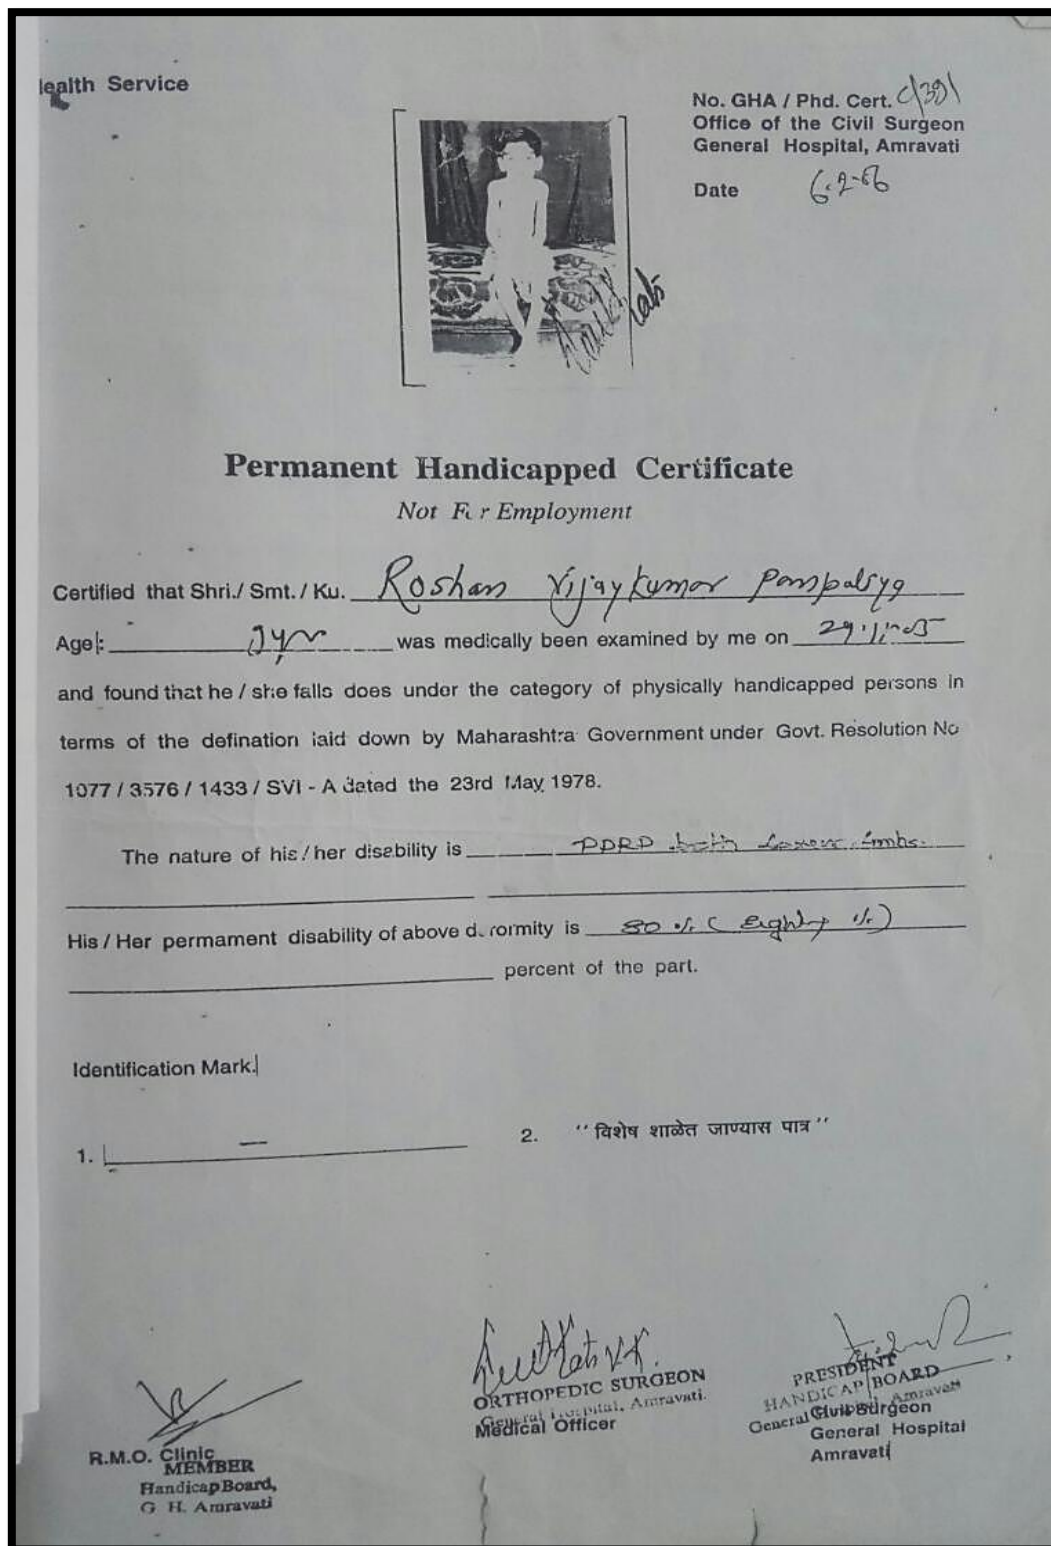 ealth Service
No. GHA / Phd. Cert. C/391
Office of the Civil Surgeon
General Hospital, Amravati
Date 6-2-06
Permanent Handicapped Certificate
Not For Employment
Certified that Shri./ Smt. / Ku. Roshan Vijaykumar
Age: was medically been examined by me on
and found that he / she falls does under the category of physically handicapped persons in
terms of the defination laid down by Maharashtra Government under Govt. Resolution No
1077 / 3576 / 1433 / SVI - A dated the 23rd May 1978.
The nature of his / her disability is PPRP both Lower Limbs.
His / Her permament disability of above d. formity is 80 % ( Eighty %)
percent of the part.
Identification Mark.
1. —
2. “ विशेष शाळेत जाण्यास पात्र ”
R.M.O. Clinic
MEMBER
Handicap Board,
G H. Amravati
ORTHOPEDIC SURGEON
General Hospital, Amravati.
Medical Officer
PRESIDENT
HANDICAP BOARD
General Hospital, Amravati
Civil Surgeon
General Hospital
Amravati